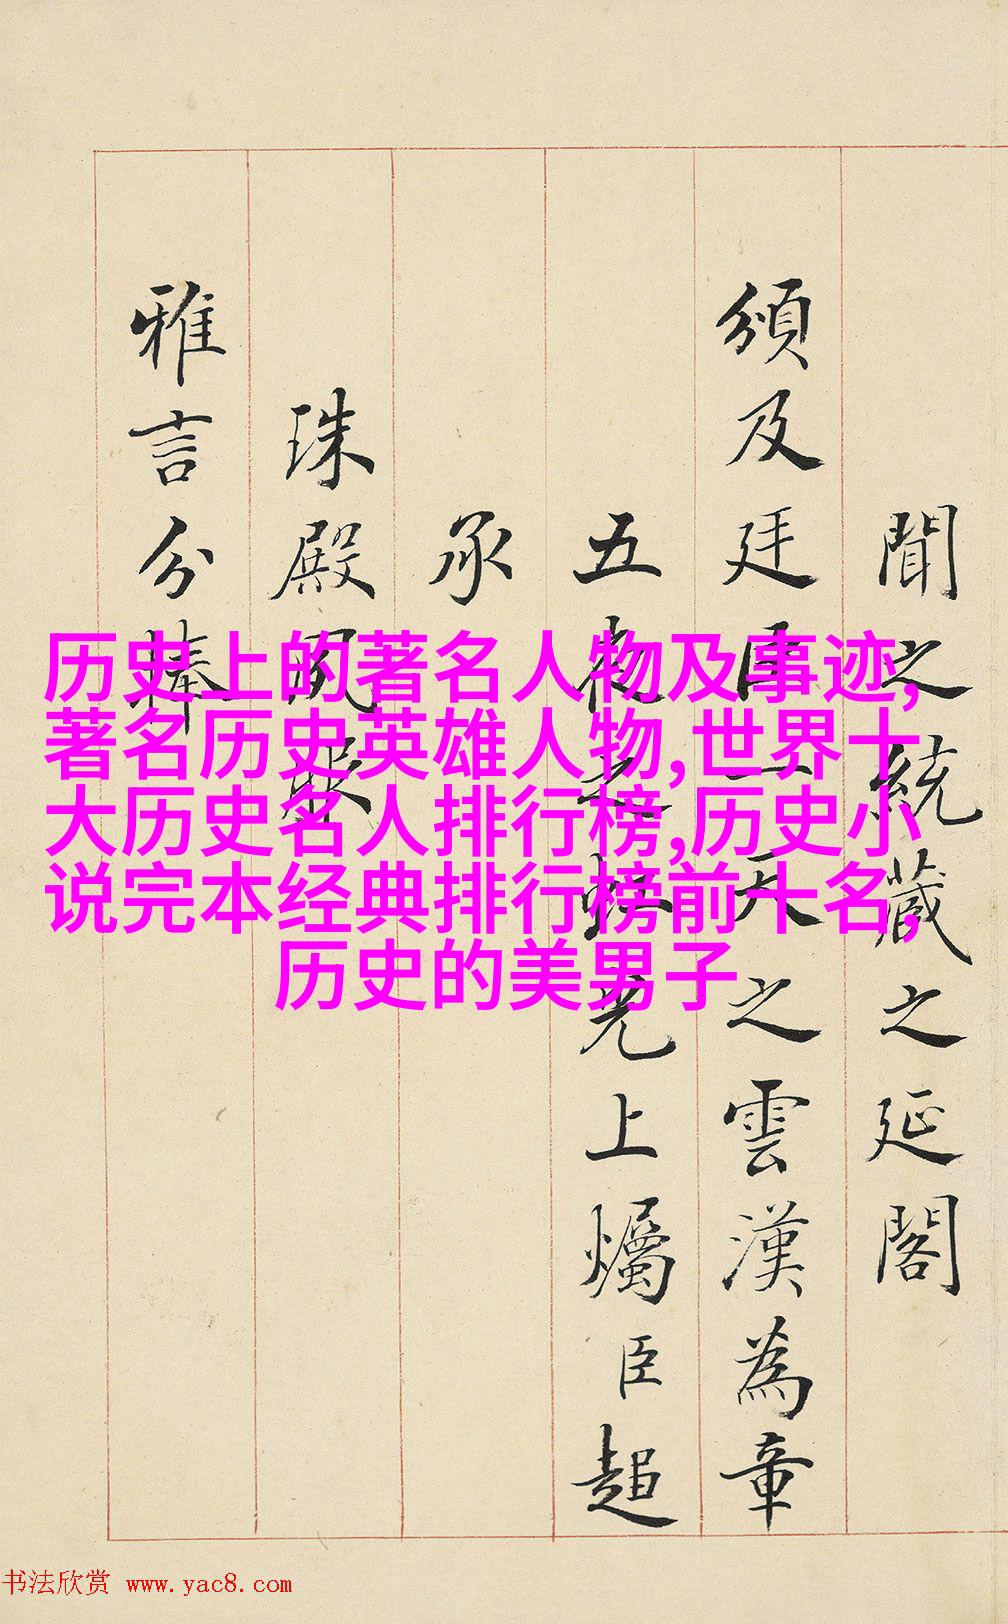 历史上的著名人物及事迹,
著名历史英雄人物,世界十
大历史名人排行榜,历史小
说完本经典排行榜前十名,
历史的美男子
聞之統藏之延閣
頒及廷臣一天之雲漢為章
五夜之虹光上爥臣超
承
珠殿夙
雅言分捧
书法欣赏 www.yac8.com